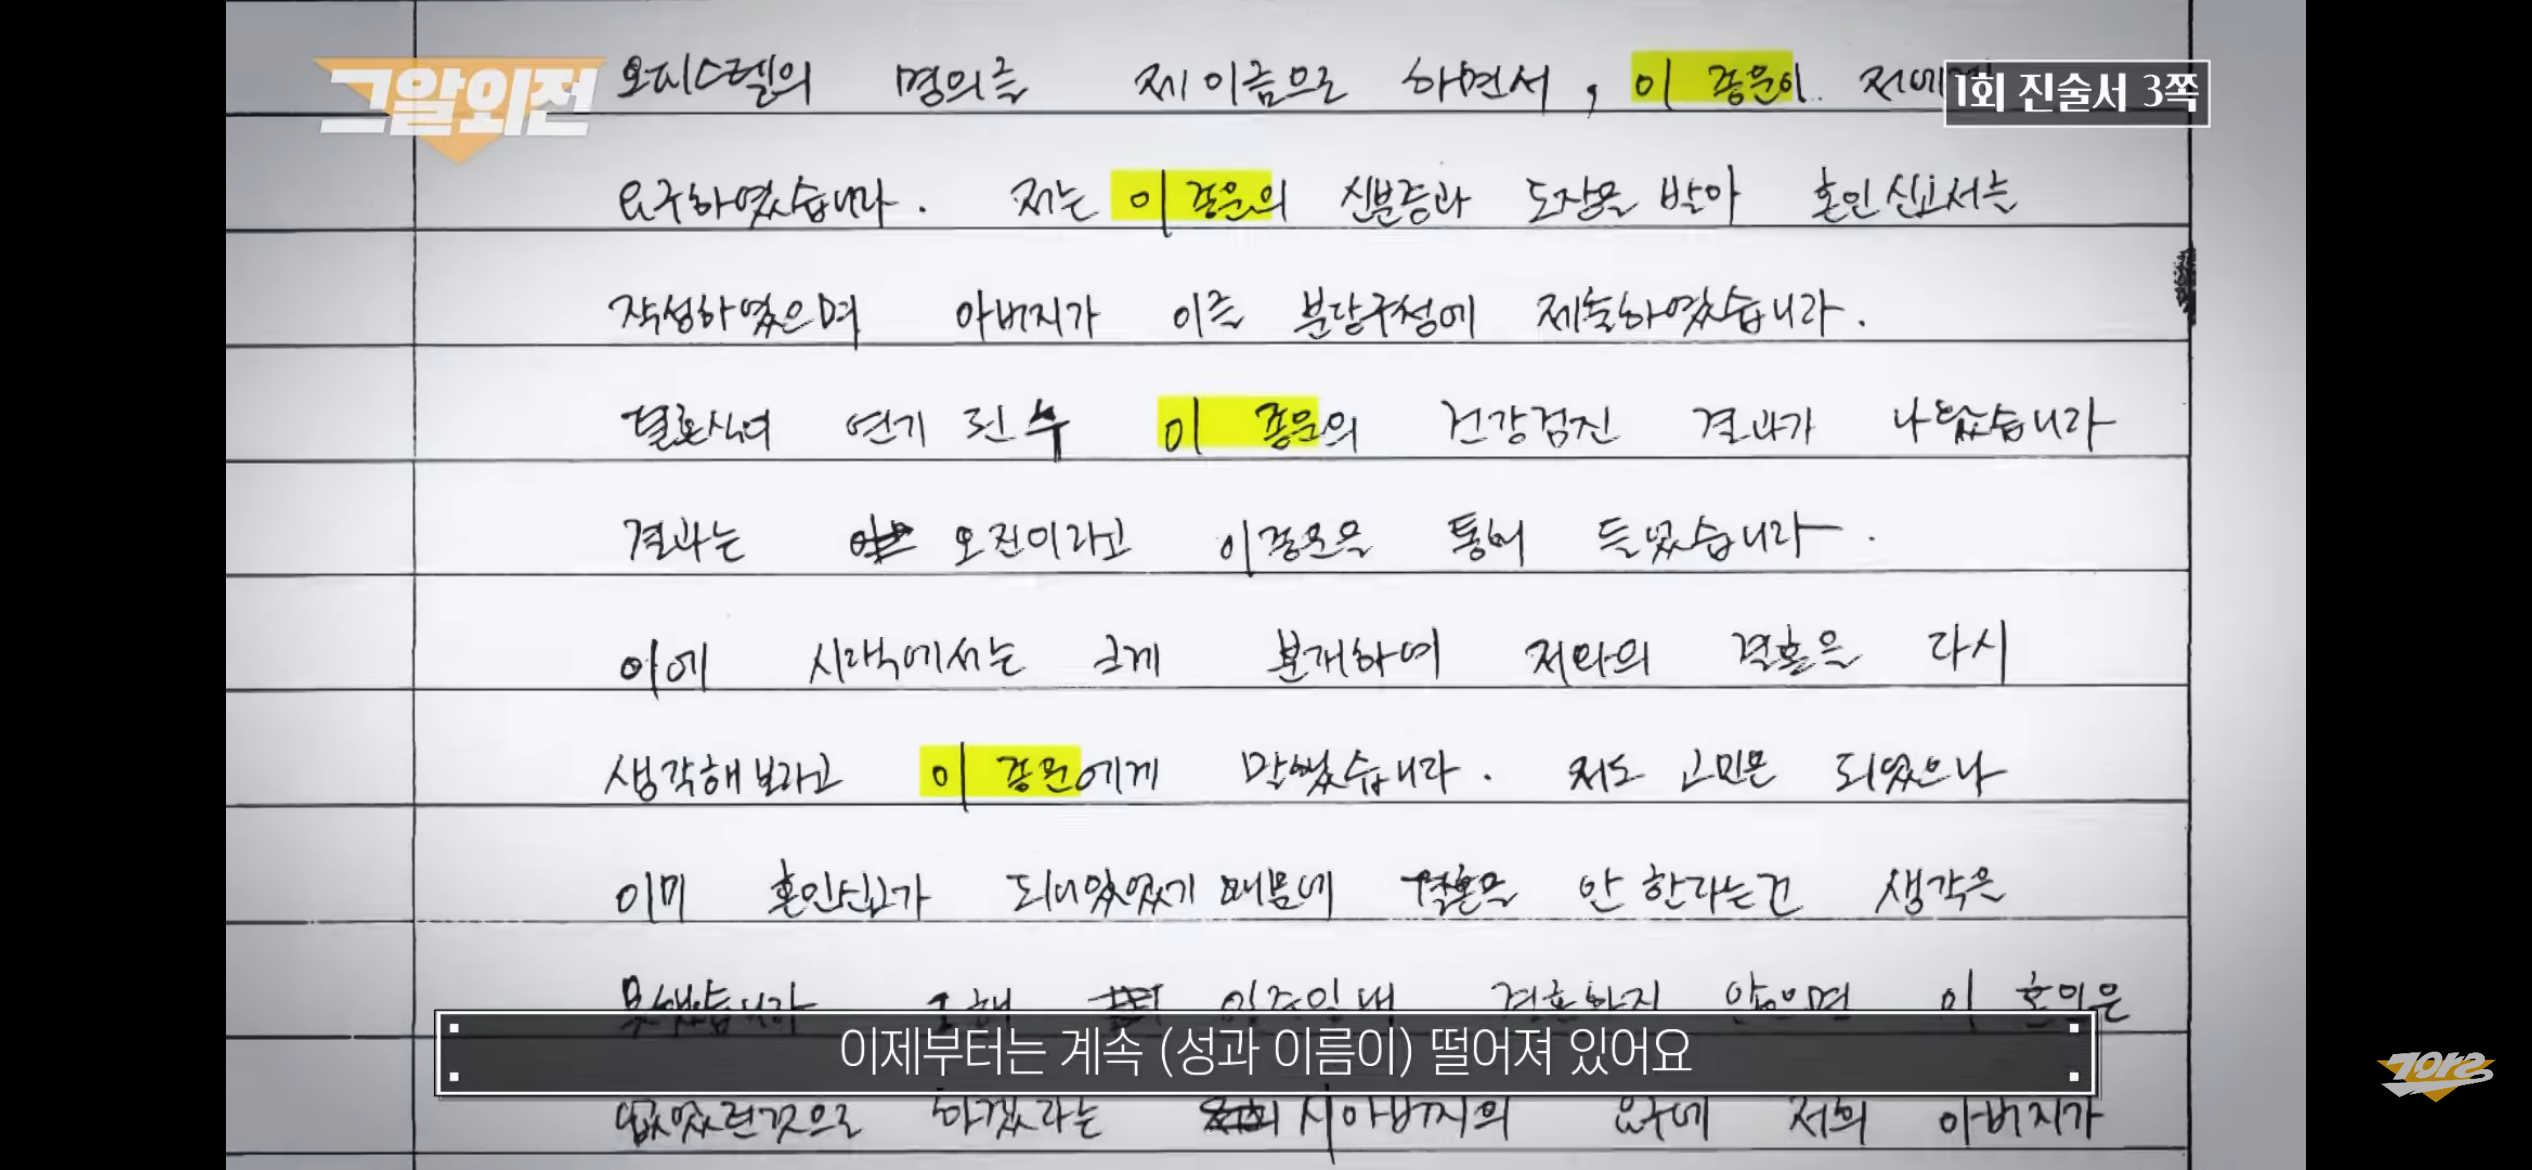 그알외전
1회 진술서 3쪽
오피스텔의 명의를 제 이름으로 하면서, 이 종운이 저에게
요구하였습니다. 저는 이 종운의 신분증과 도장을 받아 혼인신고서는
작성하였으며 아버지가 이를 분당구청에 제출하였습니다.
결혼식이 연기 된 후 이 종운의 건강검진 결과가 나왔습니다
결과는 오진이라고 이종운을 통해 들었습니다.
이에 시댁에서는 크게 분개하여 저와의 결혼을 다시
생각해보라고 이 종운에게 말했습니다. 저도 고민은 되었으나
이미 혼인신고가 되어있었기 때문에 결혼을 안 한다는건 생각은
못했습니다 결혼하지 않으면 이 혼인은
이제부터는 계속 (성과 이름이) 떨어져 있어요
없었던것으로 하겠라는 시아버지의 요구에 저희 아버지가
그알